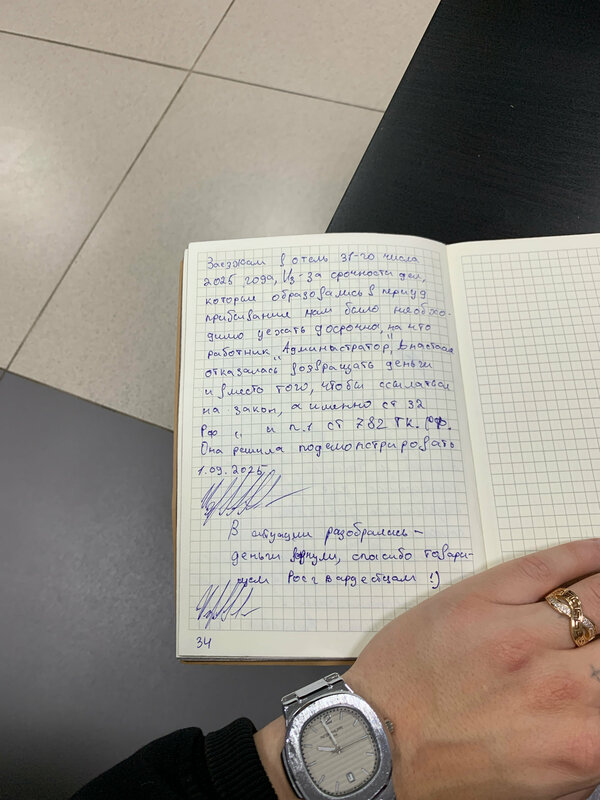 Заезжам в отель 31-го числа
2025 года, Из-за срочности дел,
которые образовались в период
прибивание нам было необхо-
димо уежать досрочно, на что
работник "Администратор",
отказалась возвращать деньги
и вместо того, чтобы ссылаться
на закон, а именно ст 32
РФ " и п.1 ст 782 ГК. РФ.
Она решила подемонстрировать
1.09.2025
В ситуации разобрались -
деньги вернули, спасибо товари-
щем Росгвардестцам !)
34